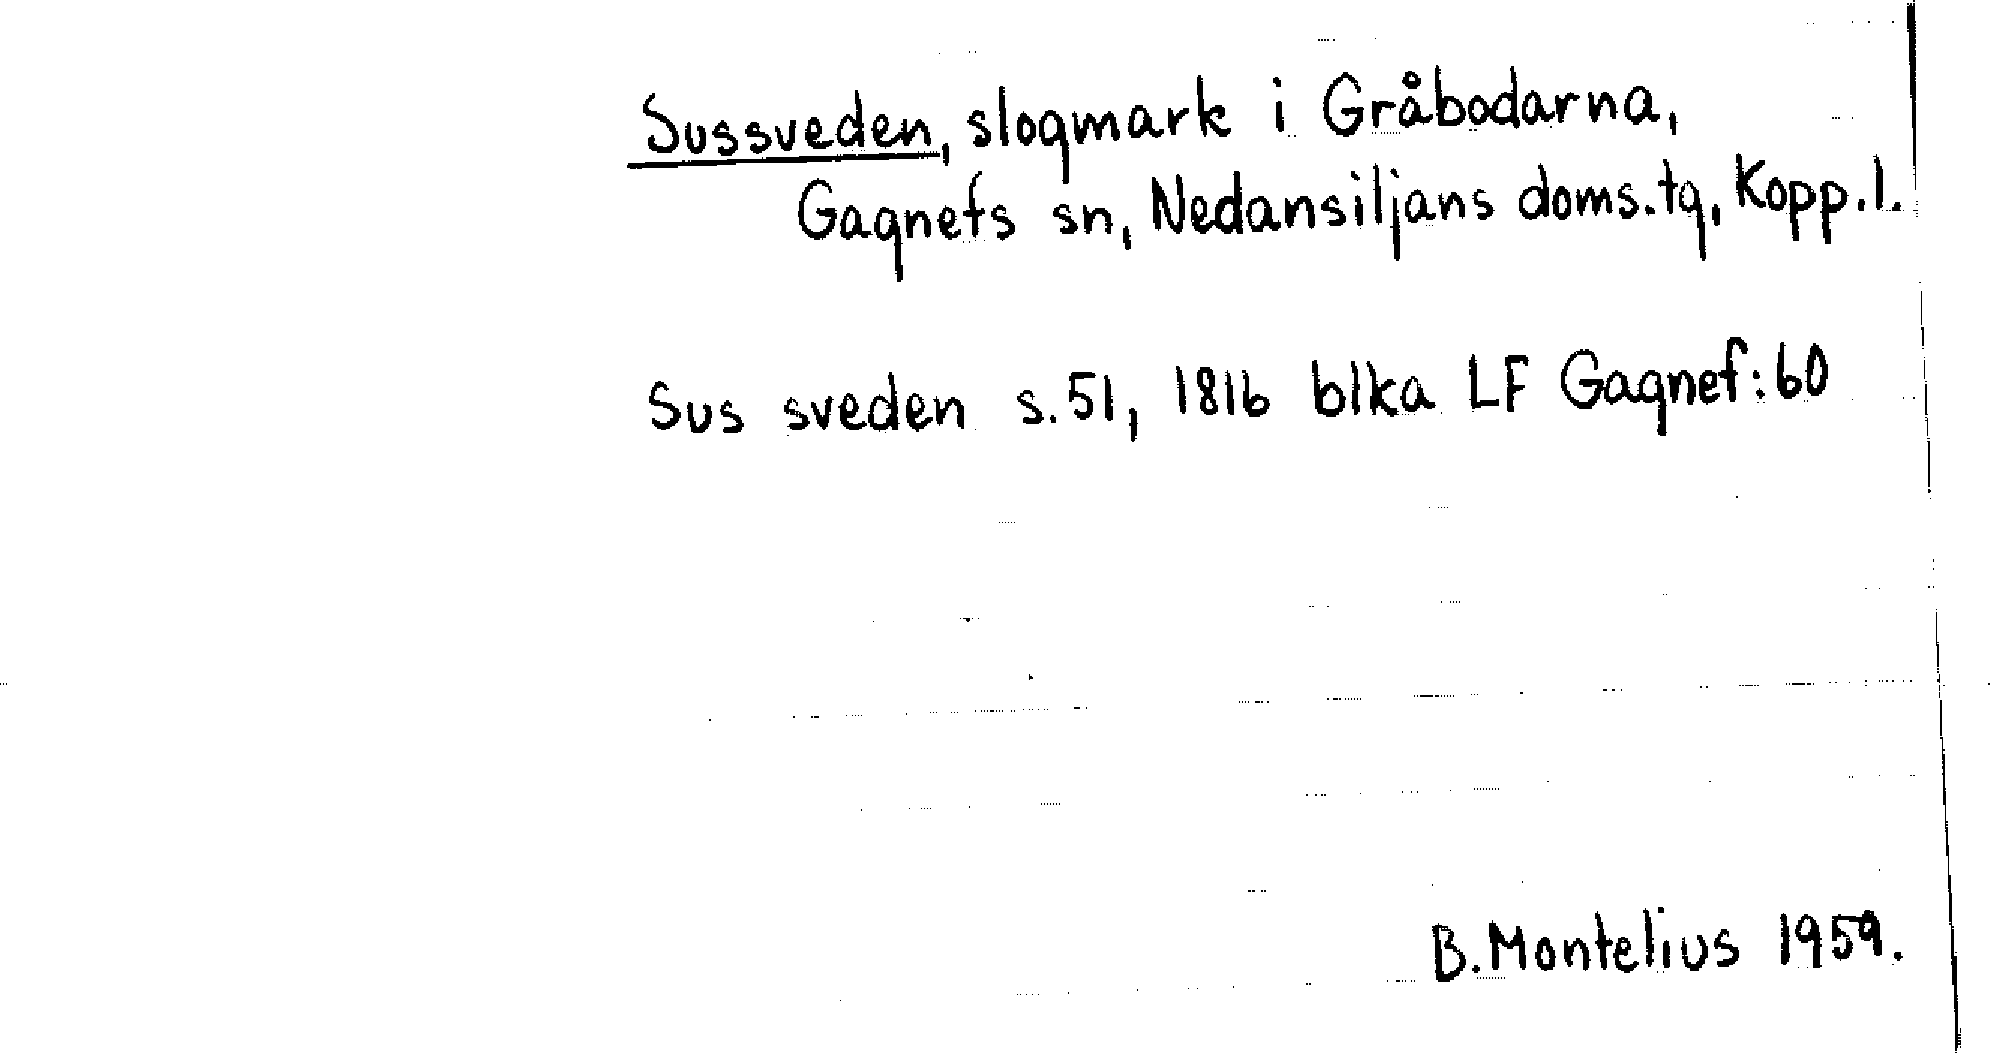 Sussveden, slogmark i Gråbodarna,
Gagnefs sn, Nedansiljans doms.tg, Kopp.l.
Sus sveden s.51, 1816 blka LF Gagnef:60
B.Montelius 1959.